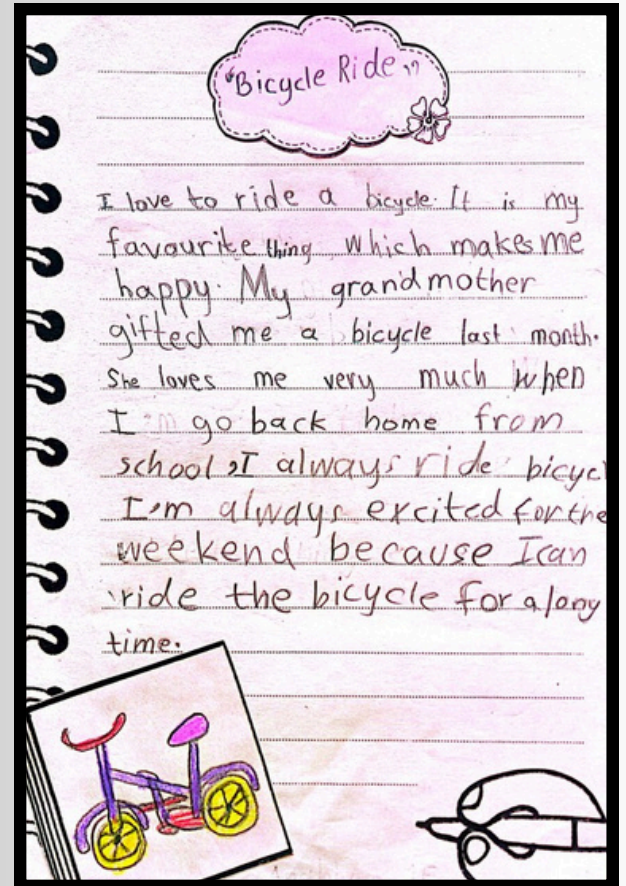 "Bicycle Ride"
I love to ride a bicycle. It is my
favourite thing which makes me
happy. My grandmother
gifted me a bicycle last month.
She loves me very much when
I go back home from
school, I always ride bicycl
I'm always excited for the
weekend because I can
ride the bicycle for a long
time.